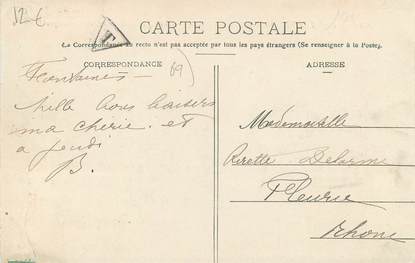 12 €
T
CARTE POSTALE
La Correspondance au recto n'est pas acceptée par tous les pays étrangers (Se renseigner à la Poste).
CORRESPONDANCE
ADRESSE
Fontaines
69
Mille bons baisers
ma chérie et
a jeudi
B.
Mademoiselle
Delorme
Fleurie
Rhone